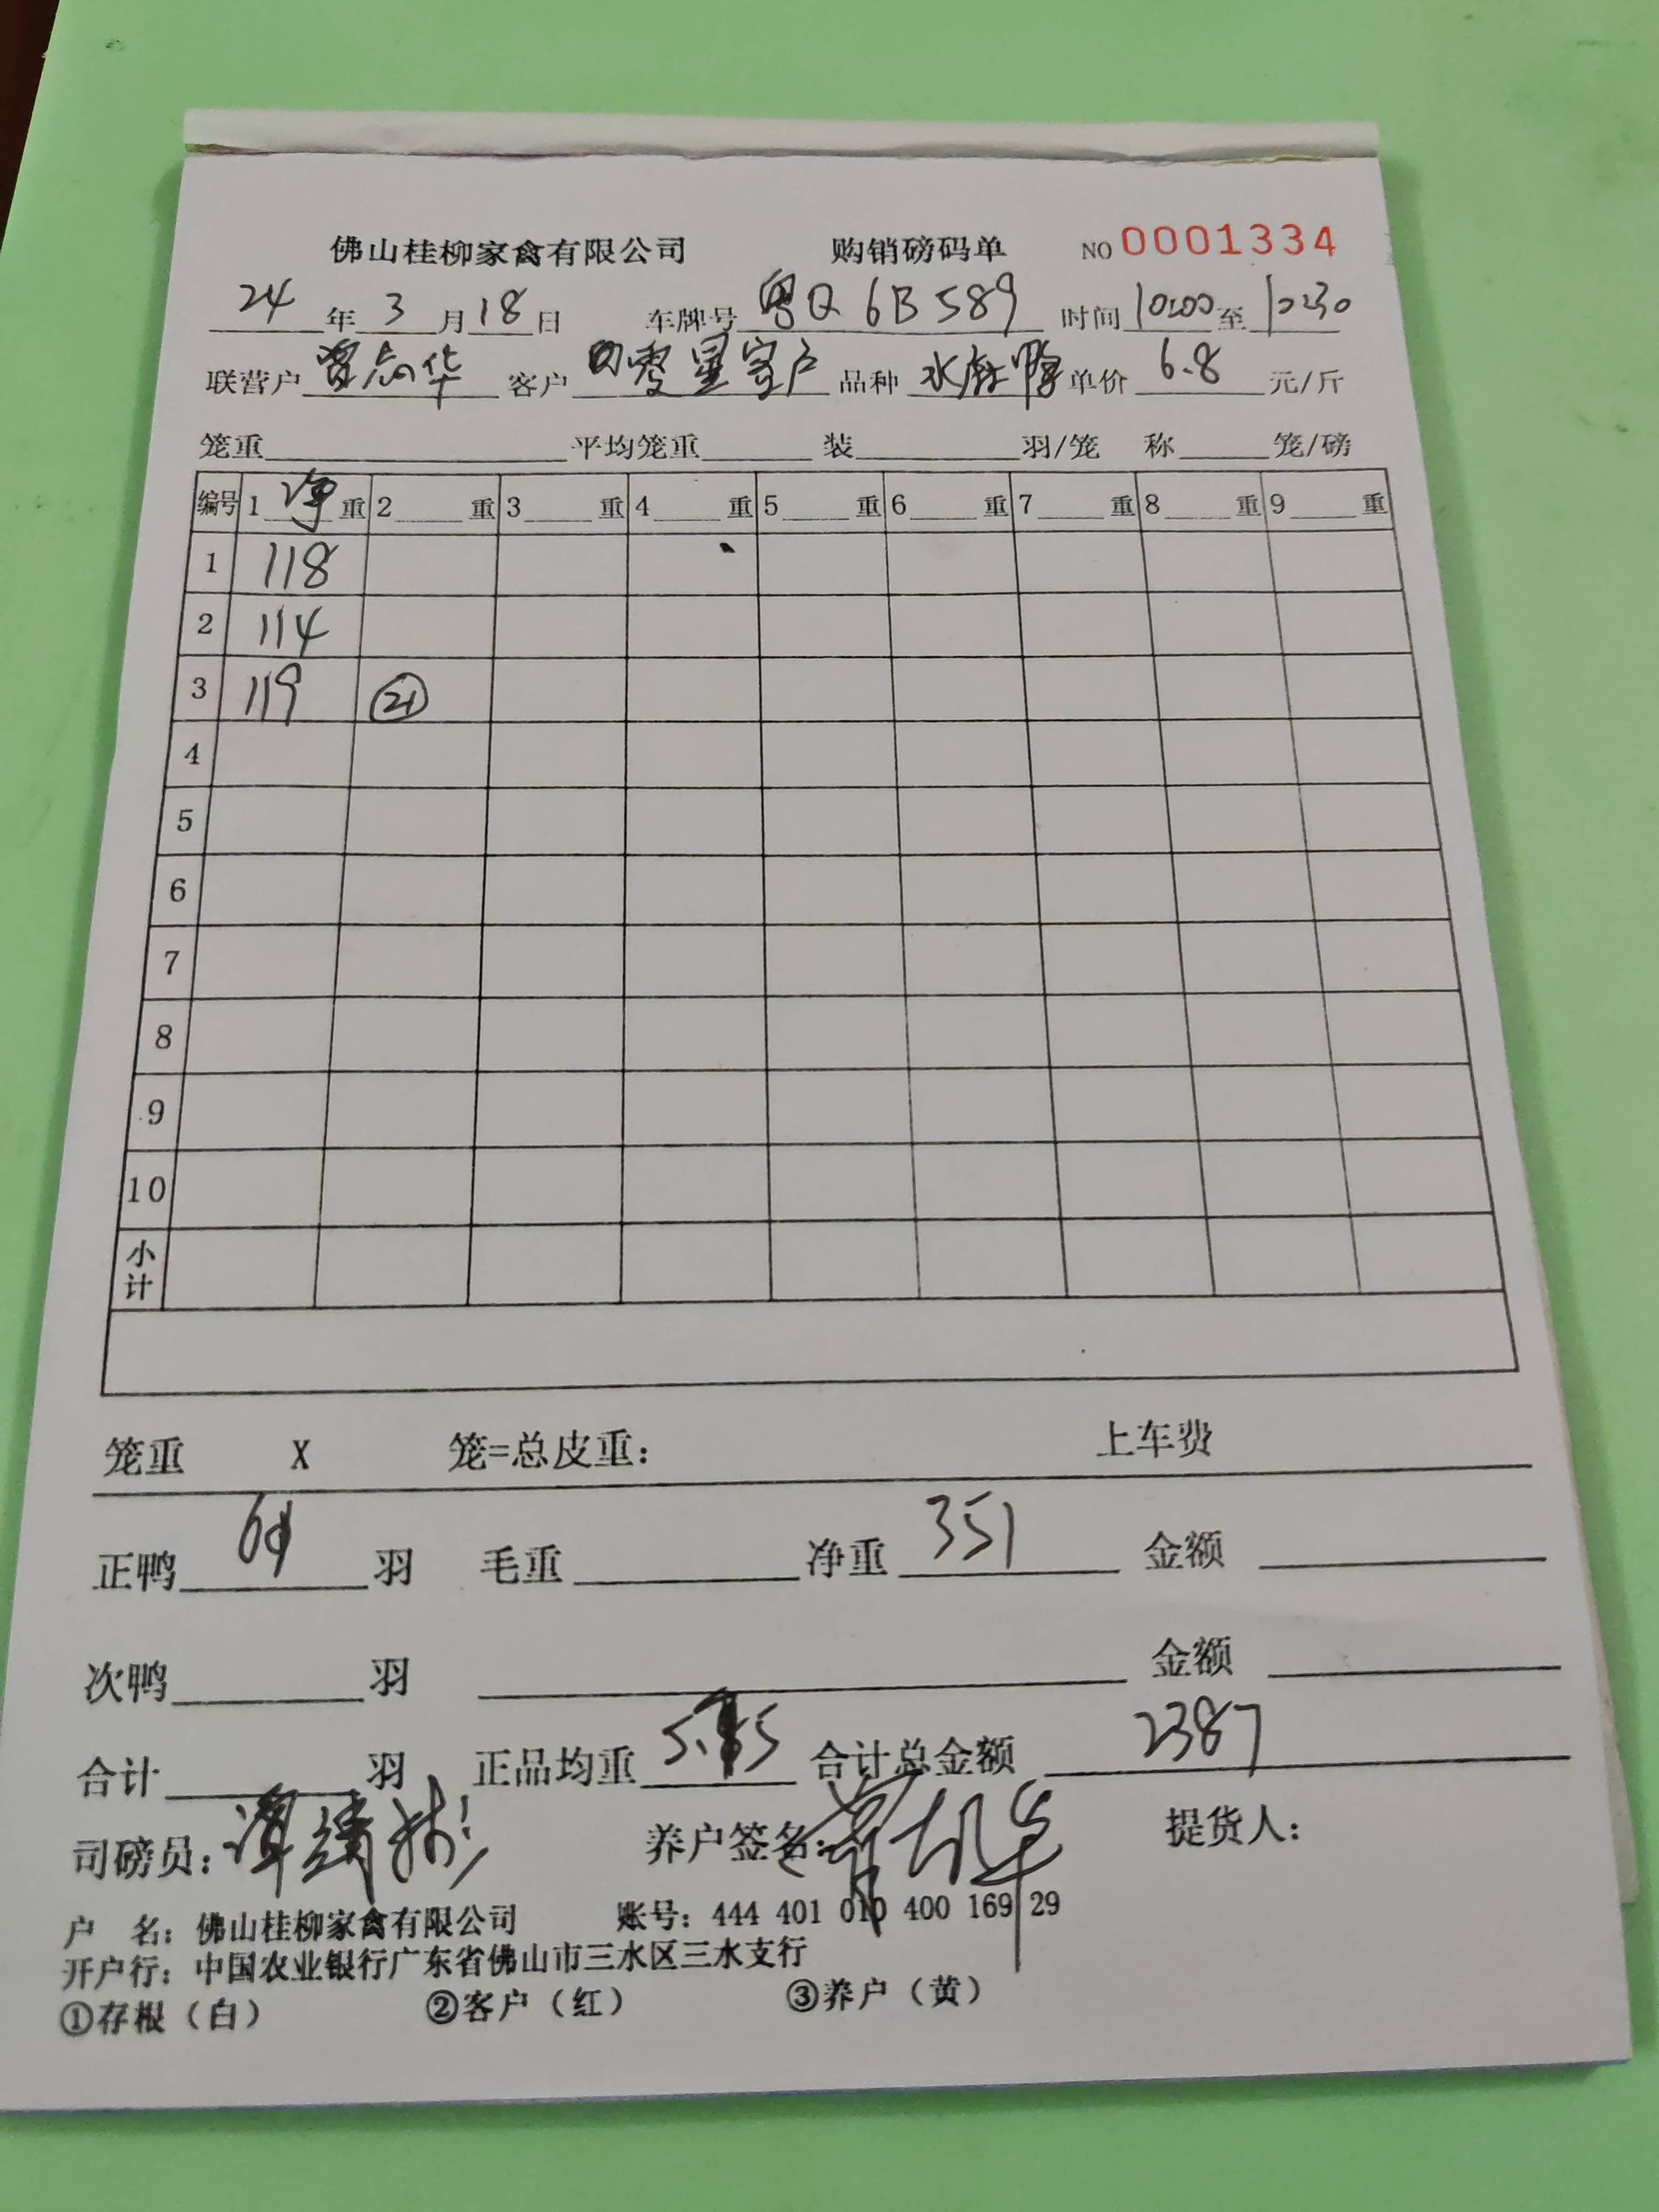 佛山桂柳家禽有限公司 购销磅码单 NO 0001334
24 年 3 月 18 日 车牌号 粤Q 6B589 时间 10:00 至 10:30
联营户 志华 客户 零星客户 品种 水麻鸭 单价 6.8 元/斤
笼重 平均笼重 装 羽/笼 称 笼/磅
编号 1 净 重 2 重 3 重 4 重 5 重 6 重 7 重 8 重 9 重
1 118
2 114
3 119 21
4
5
6
7
8
9
10
小计
笼重 X 笼=总皮重: 上车费
正鸭 羽 毛重 净重 351 金额
次鸭 羽 金额
合计 羽 正品均重 合计总金额 2387
司磅员: 养户签名: 提货人:
户 名: 佛山桂柳家禽有限公司 账号: 444 401 010 400 169 29
开户行: 中国农业银行广东省佛山市三水区三水支行
①存根（白） ②客户（红） ③养户（黄）